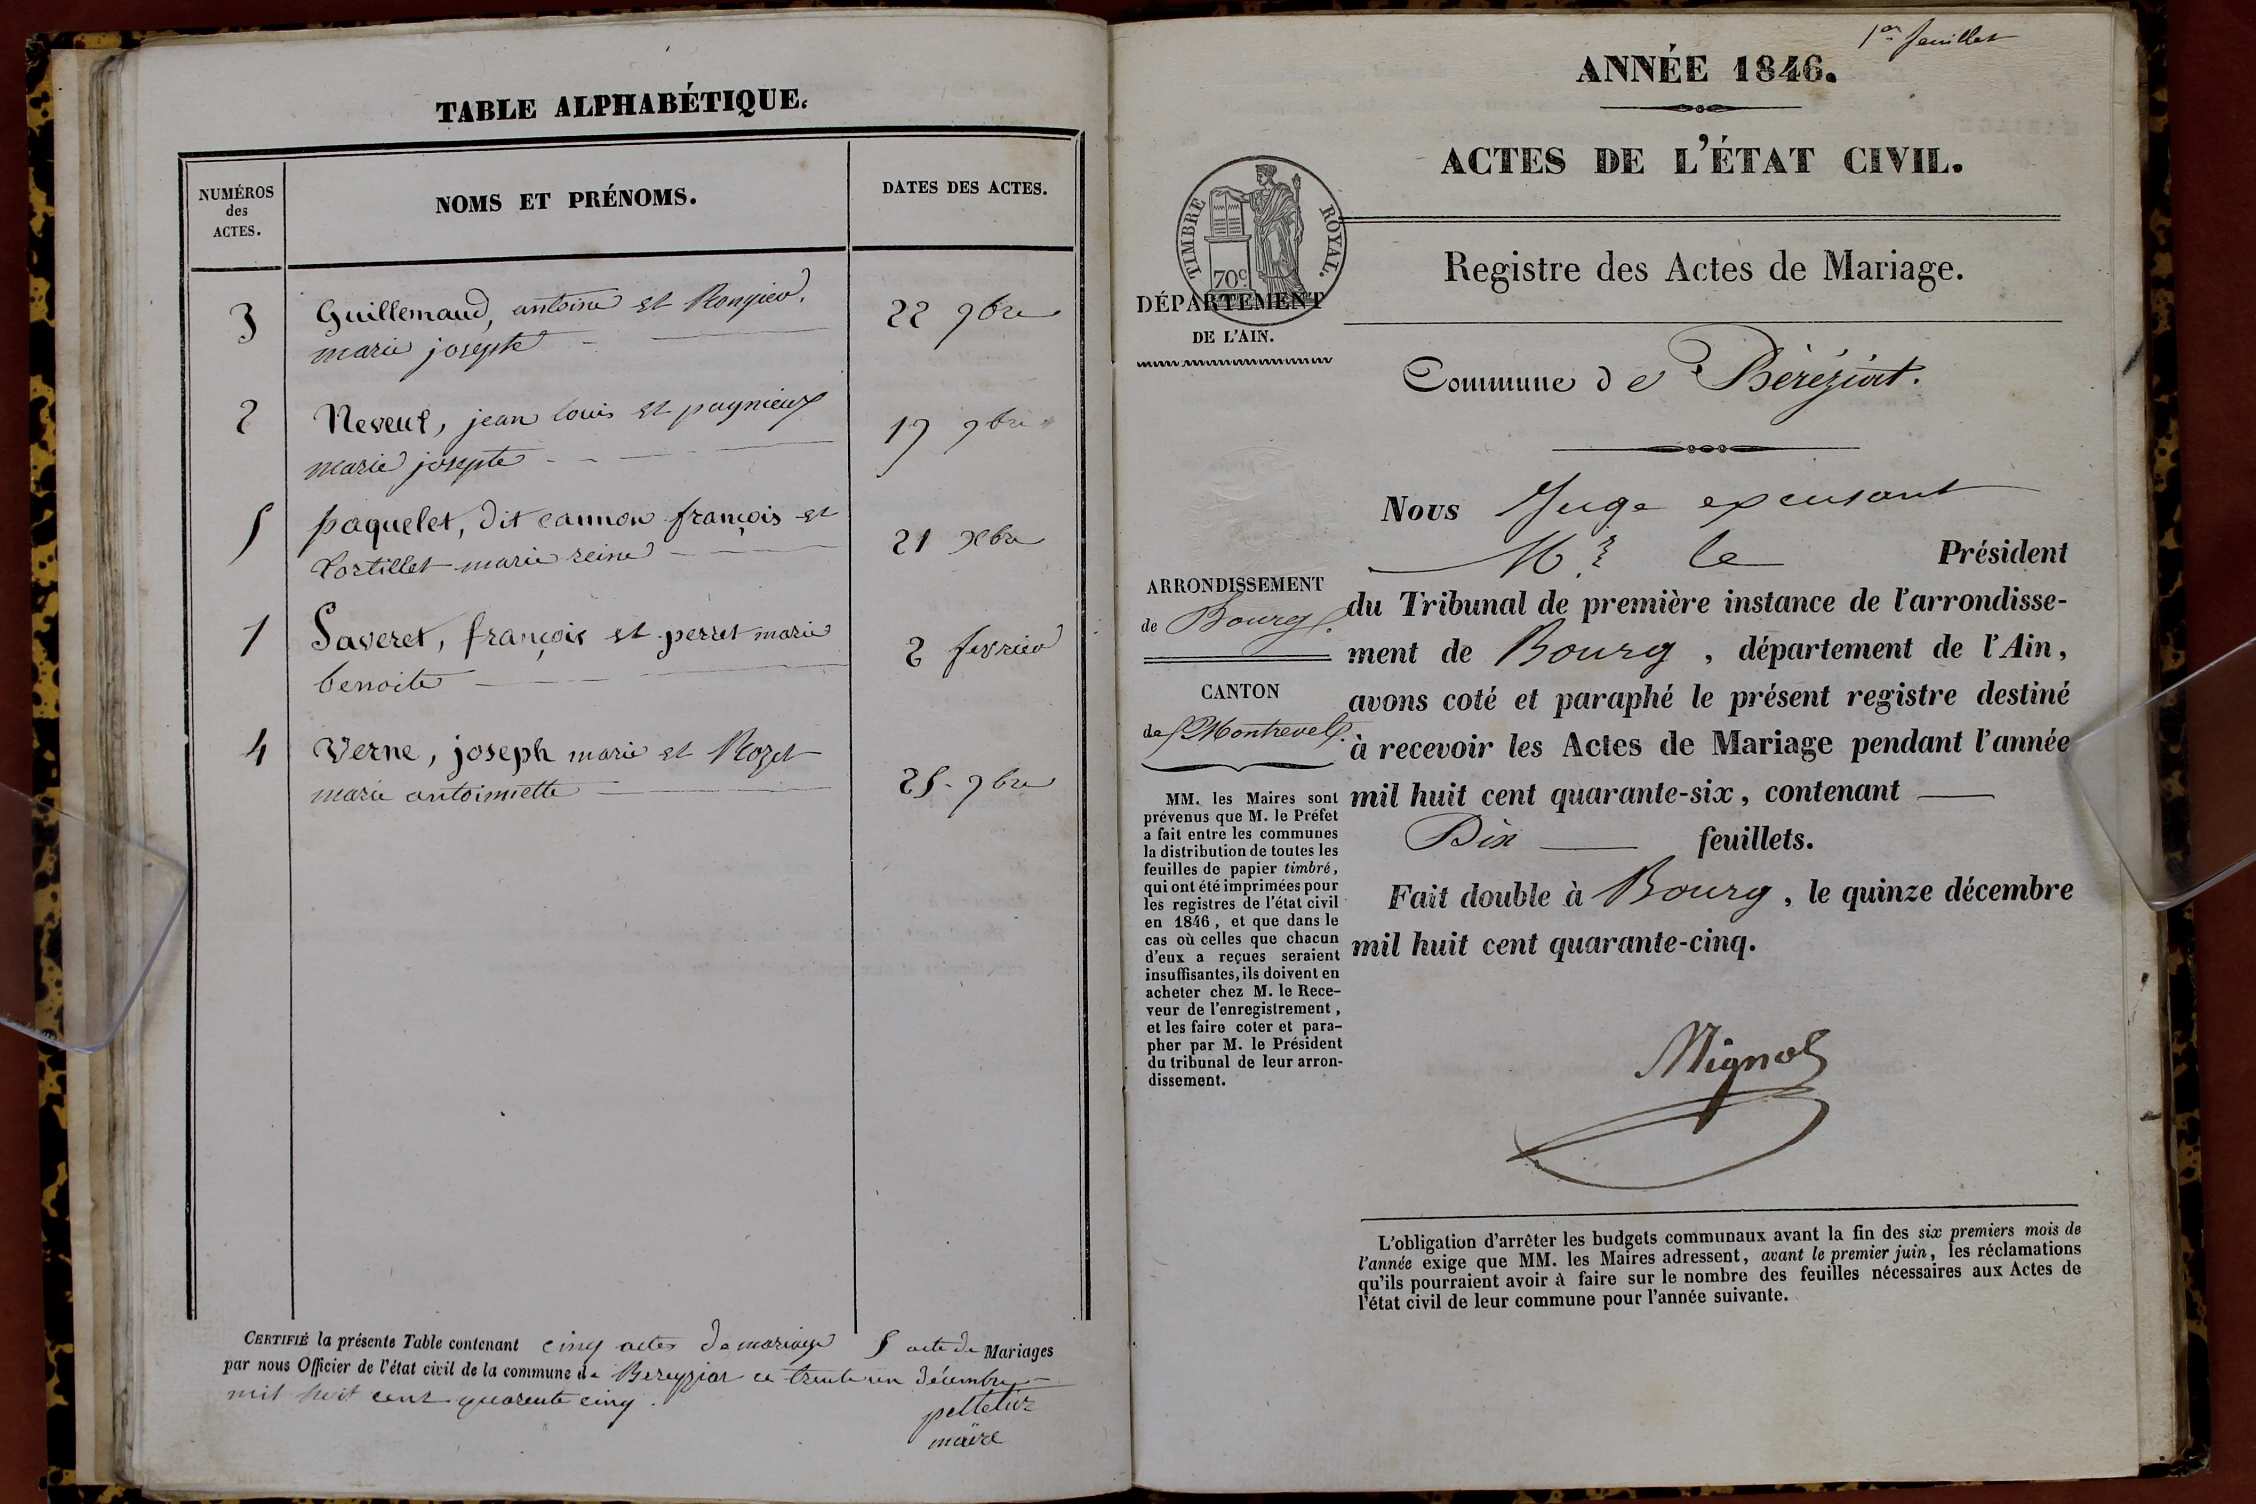 TABLE ALPHABÉTIQUE.
NUMÉROS
des
ACTES.
NOMS ET PRÉNOMS.
DATES DES ACTES.
3 Guillemaud, antoine et Rongier 22 9bre
marie josepte
2 Neveux, jean louis et pagnieux 17 9bre
marie josepte
5 paquelet, dit cannon françois et 21 Xbre
Tortillet marie reine
1 Saveret, françois et perret marie 2 fevrier
benoite
4 Verne, joseph marie et Rozet 25 9bre
marie antoinnette
CERTIFIÉ la présente Table contenant cinq actes de mariage 5 acte de Mariages
par nous Officier de l'état civil de la commune de Bereyziat ce trente un décembre
mil huit cent quarente cinq.
pelletier
maire
1er feuillet
ANNÉE 1846.
ACTES DE L'ÉTAT CIVIL.
TIMBRE ROYAL.
70c
DÉPARTEMENT
DE L'AIN.
Registre des Actes de Mariage.
Commune de Béréziat.
Nous Juge excusant
Mr le Président
du Tribunal de première instance de l'arrondisse-
ment de Bourg, département de l'Ain,
avons coté et paraphé le présent registre destiné
à recevoir les Actes de Mariage pendant l'année
mil huit cent quarante-six, contenant
Dix feuillets.
Fait double à Bourg, le quinze décembre
mil huit cent quarante-cinq.
Mignot
ARRONDISSEMENT
de Bourg.
CANTON
de Montrevel.
MM. les Maires sont
prévenus que M. le Préfet
a fait entre les communes
la distribution de toutes les
feuilles de papier timbré,
qui ont été imprimées pour
les registres de l'état civil
en 1846, et que dans le
cas où celles que chacun
d'eux a reçues seraient
insuffisantes, ils doivent en
acheter chez M. le Rece-
veur de l'enregistrement,
et les faire coter et para-
pher par M. le Président
du tribunal de leur arron-
dissement.
L'obligation d'arrêter les budgets communaux avant la fin des six premiers mois de
l'année exige que MM. les Maires adressent, avant le premier juin, les réclamations
qu'ils pourraient avoir à faire sur le nombre des feuilles nécessaires aux Actes de
l'état civil de leur commune pour l'année suivante.